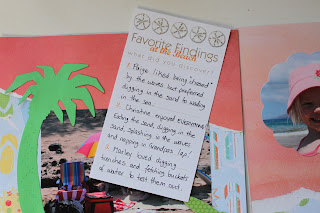 Favorite Findings
at the Beach
what did you discover?
1. Paige liked being "chased"
by the waves but preferred
digging in the sand to wading
in the sea.
2. Christine enjoyed
Eating the sand, digging in the
sand, splashing in the waves
and napping in Grandpa's lap!
3. Marley loved digging
trenches and fetching buckets
of water to test them out.